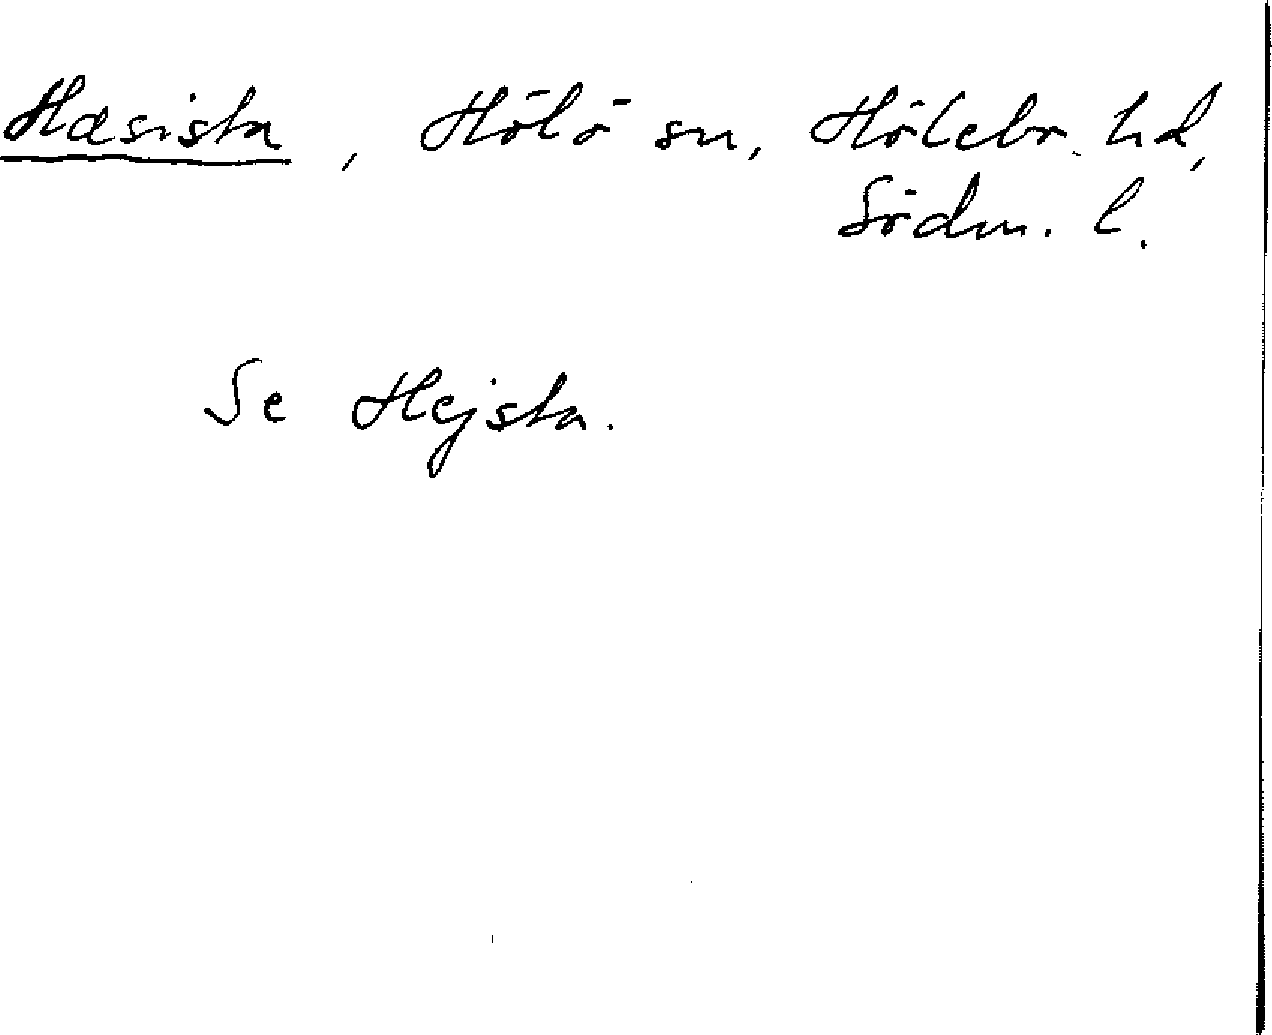 Hæsista, Hölö sn, Hölebo hd,
Södm. l.
Se Hejsta.